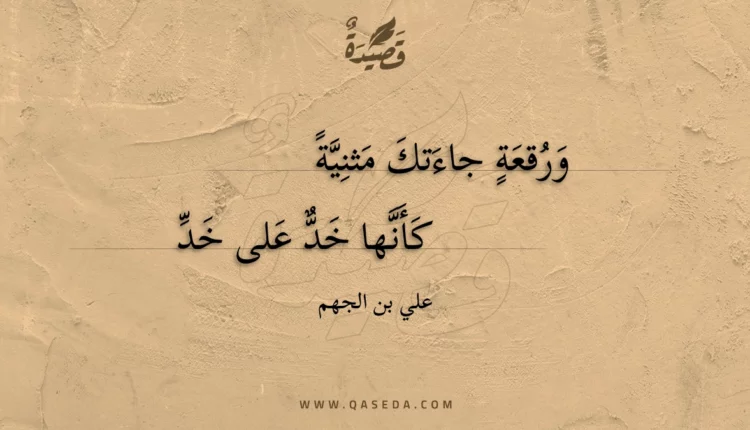 قَصِيدَةٌ
وَرُقعَةٍ جاءَتكَ مَثنِيَّةً
كَأَنَّها خَدٌّ عَلى خَدِّ
علي بن الجهم
WWW.QASEDA.COM